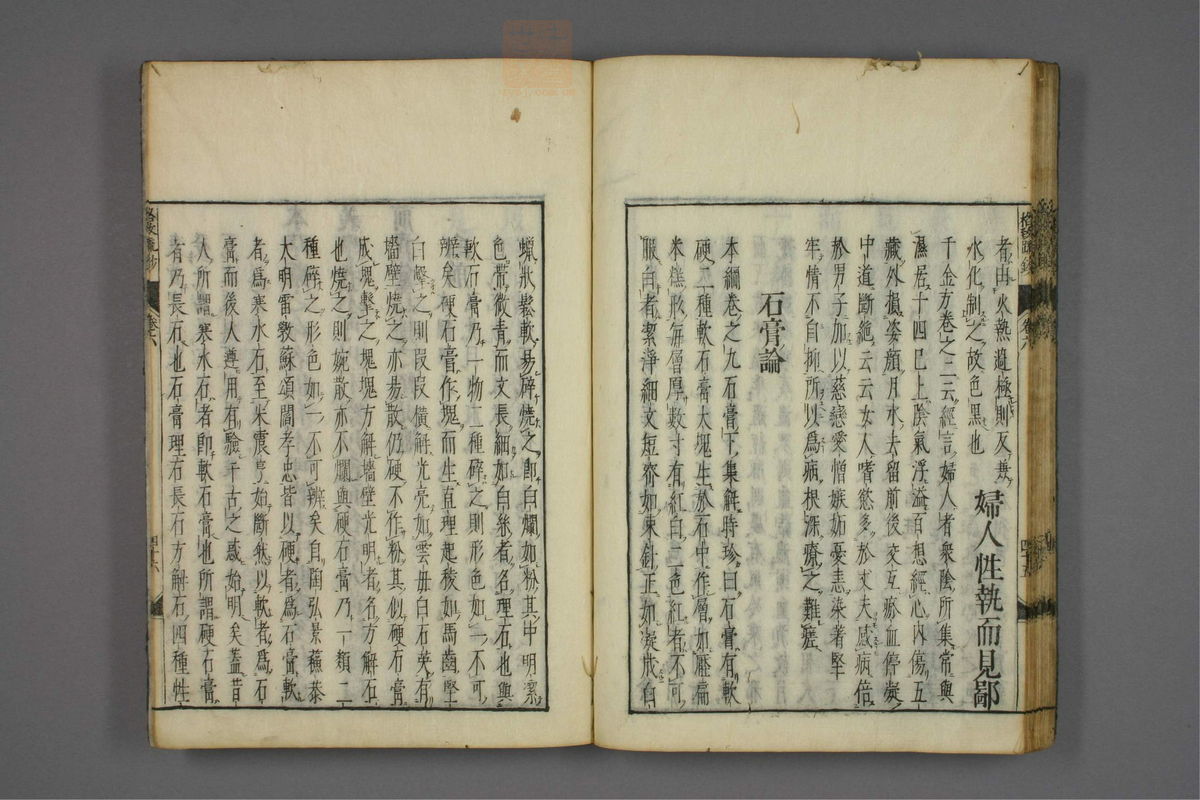 者由火熱過極則反兼
水化制之故色黑也
婦人性執而見鄙
千金方卷之二云經言婦人者衆陰所集常與
濕居十四已上陰氣浮溢百想經心內傷五
藏外損姿顔月水去留前後交互瘀血停凝
中道斷絶云云女人嗜慾多於丈夫感病倍
於男子加以慈戀愛憎嫉妬憂恚染著堅
牢情不自抑所以爲病根深療之難瘥
石膏論
本綱卷之九石膏下集解時珍曰石膏有軟
硬二種軟石膏大塊生於石中作層如壓扁
米糕形每層厚數寸有紅白二色紅者不可
服白者潔淨細文短密如束針正如凝成白
蠟狀鬆軟易碎燒之卽白爛如粉其中明潔
色帶微青而文長細如白絲者名理石也與
軟石膏乃一物二種碎之則形色如一不可
辨矣硬石膏作塊而生直理起稜如馬齒堅
白擊之則段段橫解光亮如雲母白石英有
墻壁燒之亦易散仍硬不作粉其似硬石膏
成塊擊之塊塊方解墻壁光明者名方解石
也燒之則姹散亦不爛與硬石膏乃一類二
種碎之形色如一不可辨矣自陶弘景蘇恭
大明雷斅蘇頌閻孝忠皆以硬者爲石膏軟
者爲寒水石至朱震亨始斷然以軟者爲石
膏而後人遵用有驗千古之惑始明矣蓋昔
人所謂寒水石者卽軟石膏也所謂硬石膏
者乃長石也石膏理石長石方解石四種性
卷六
四十五
卷六
四十六